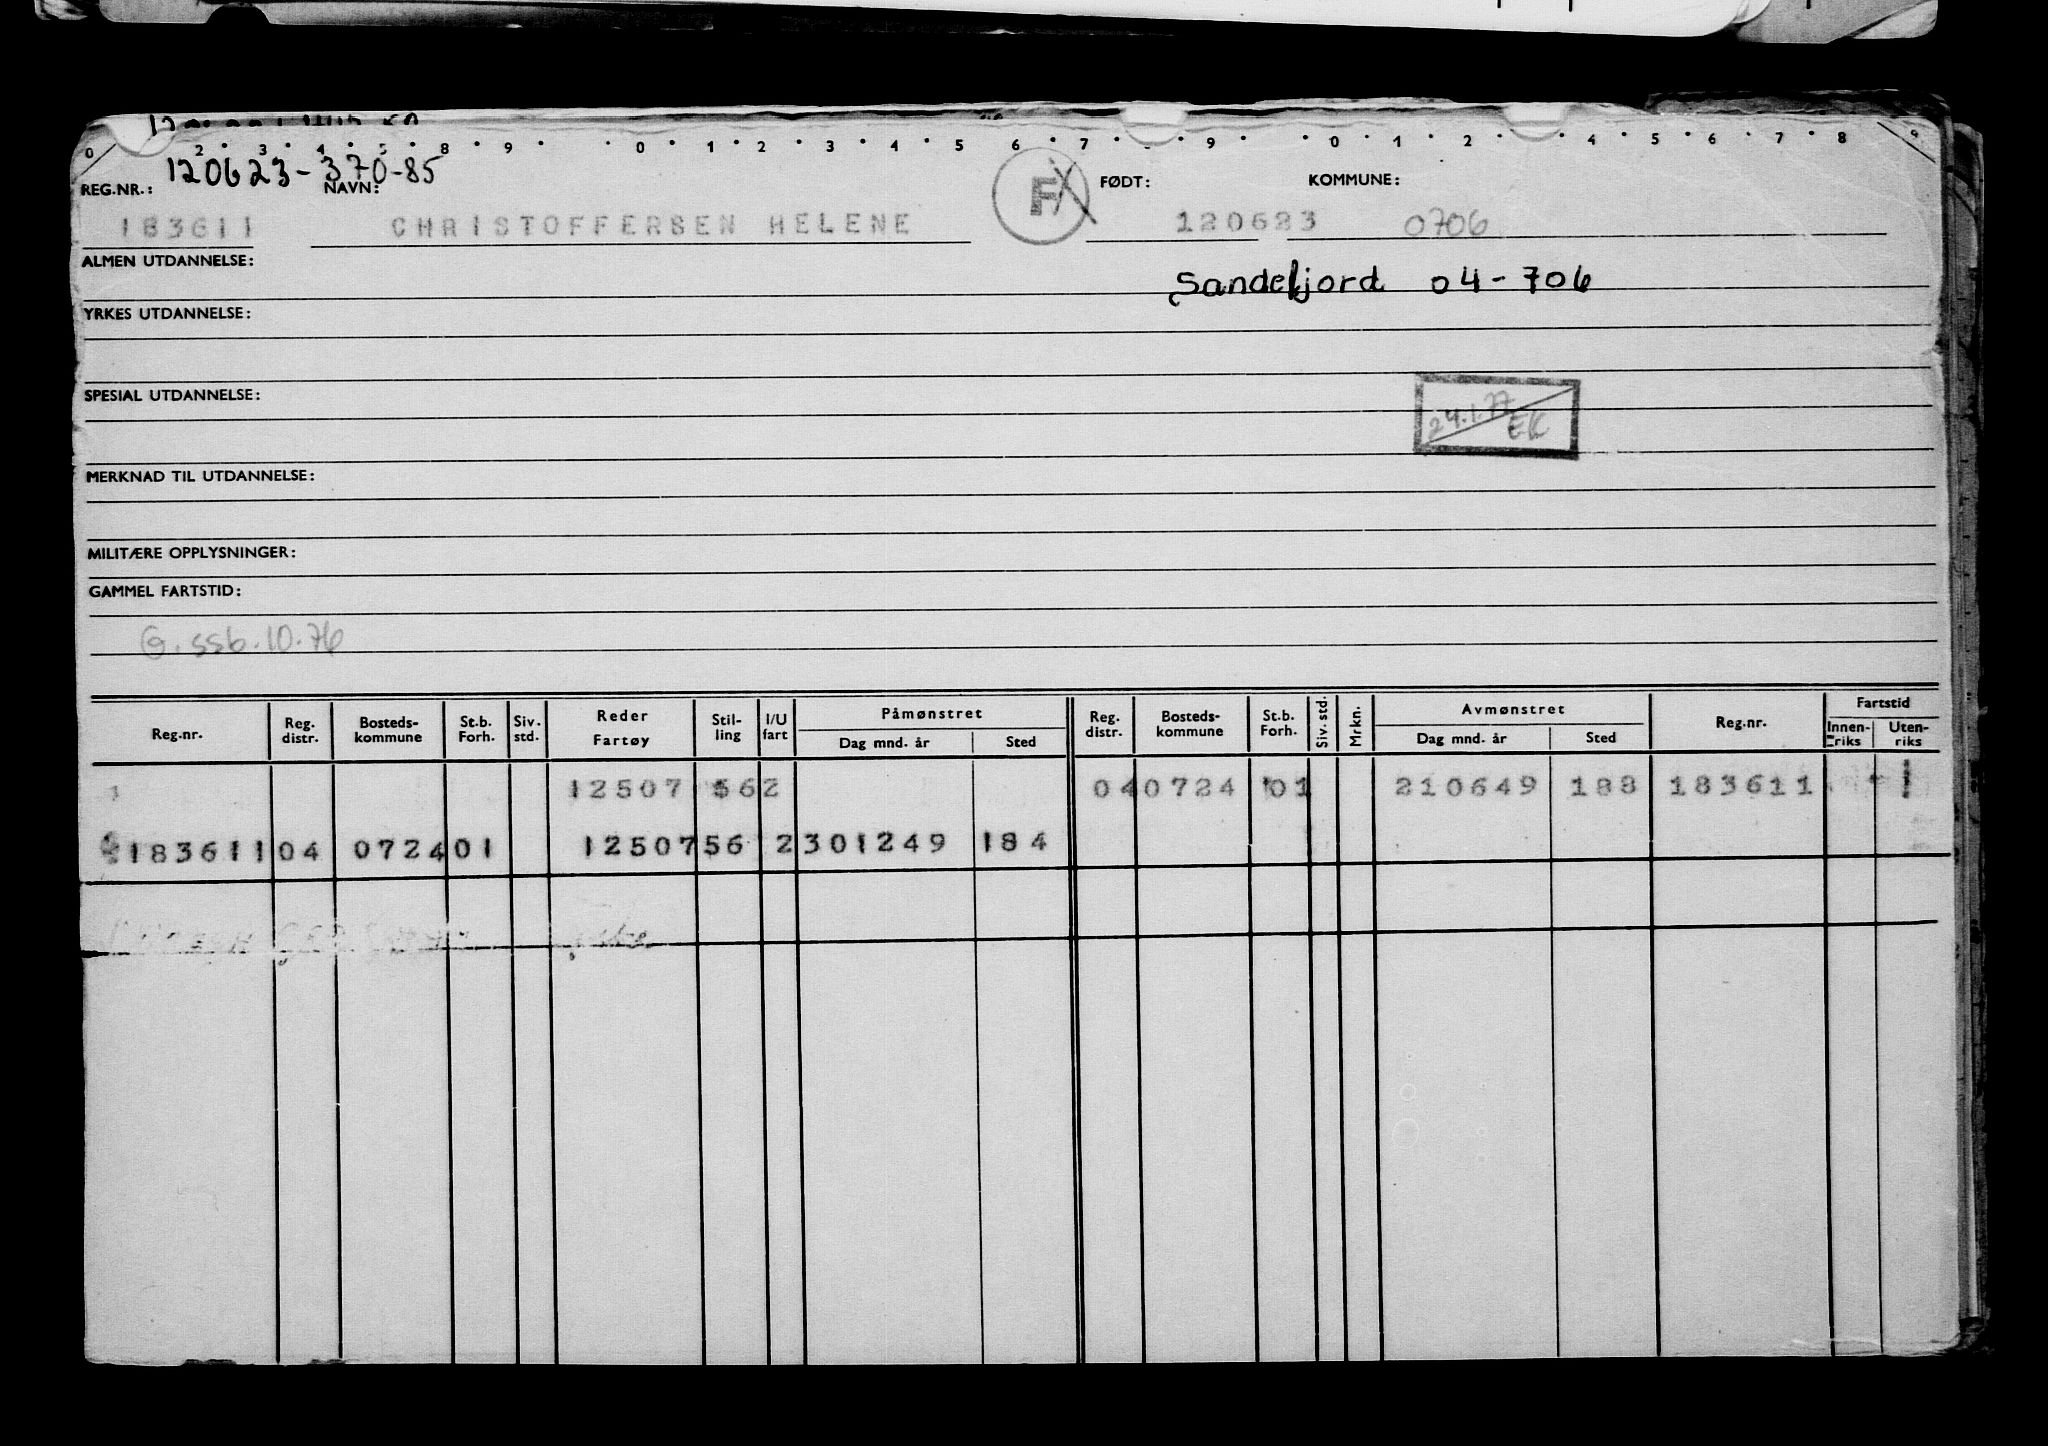 0 2 3 4 5 8 9 0 1 2 3 4 5 6 7 9 0 1 2 4 5 6 7 8 9
120623-370-85
REG.NR.: NAVN: F FØDT: KOMMUNE:
183611 CHRISTOFFERSEN HELENE 120623 0706
ALMEN UTDANNELSE:
Sandefjord 04-706
YRKES UTDANNELSE:
SPESIAL UTDANNELSE:
24.1.77
EK
MERKNAD TIL UTDANNELSE:
MILITÆRE OPPLYSNINGER:
GAMMEL FARTSTID:
G.ssb.10.76
Reg.nr. Reg. distr. Bosteds-kommune St.b. Forh. Siv. std. Reder Fartøy Stil-ling I/U fart Påmønstret Dag mnd. år Sted Reg. distr. Bosteds-kommune St.b. Forh. Siv. std. Mrkn. Avmønstret Dag mnd. år Sted Reg.nr. Fartstid Innen-riks Uten-riks
12507 562 04 0724 01 210649 188 183611 1
183611 04 0724 01 12507 56 2 301249 184